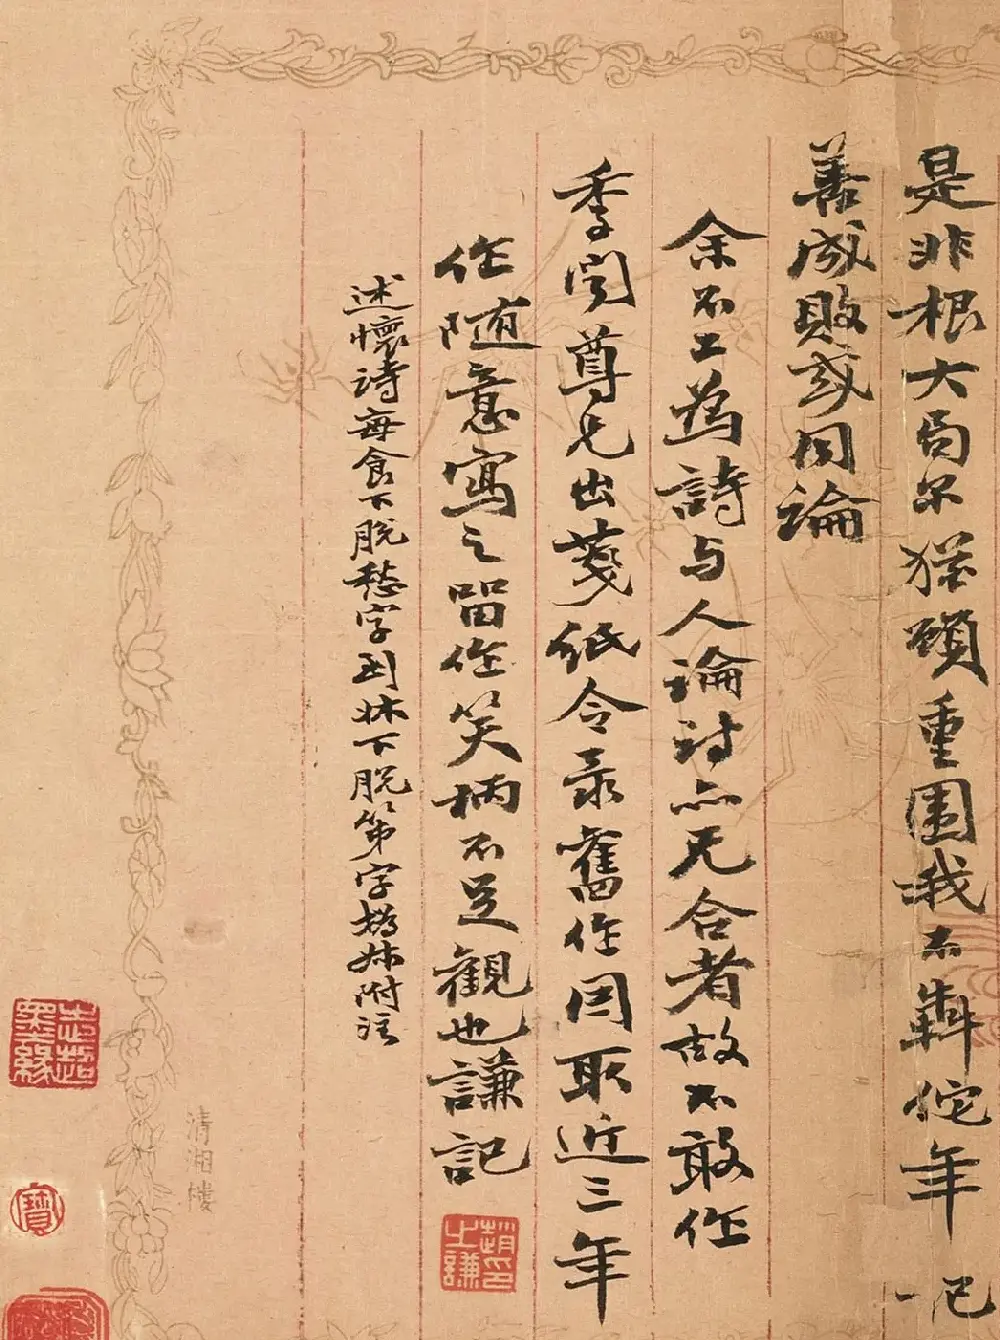 是非根大局尔猶瞋重圍我不犇佗年一᠎
善成敗或同論
余不工為詩与人論詩亦无合者故不敢作
季闻尊兄出箋紙令录舊作因取近三年
作随意寫之留作笑柄不足觀也謙記
述懷詩每食下脱愁字到牀下脱第字搗妹附注
趙之謙印
清湘樓
寶